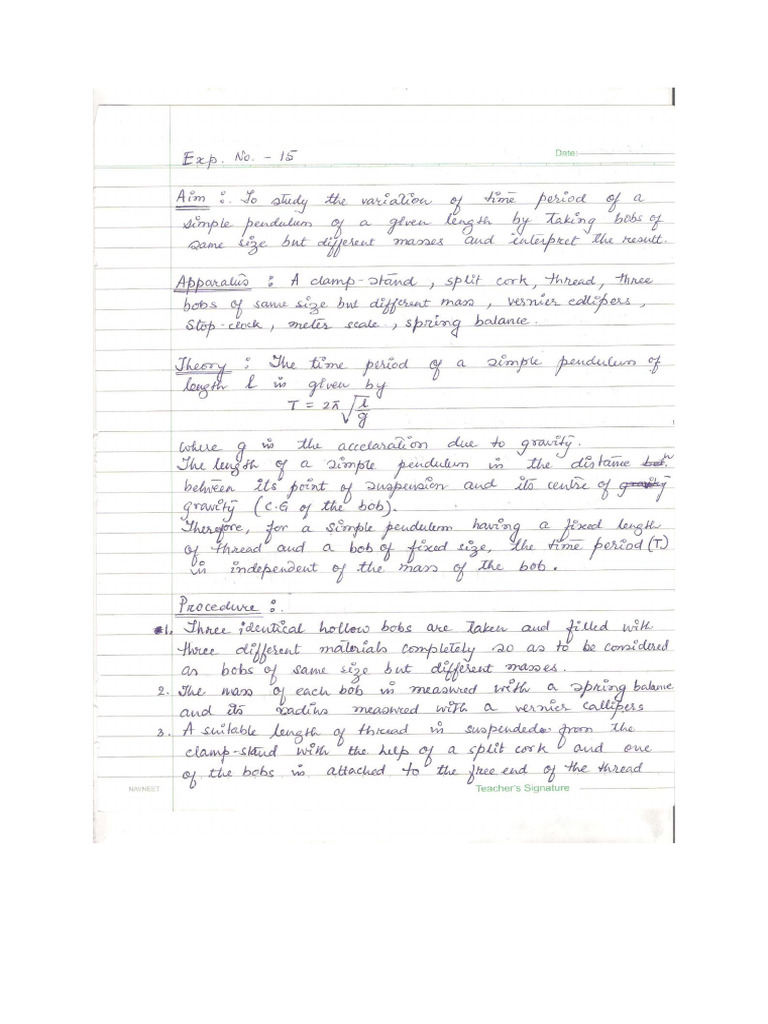 Exp. No. - 15
Date:
Aim :. To study the variation of time period of a
simple pendulum of a given length by taking bobs of
same size but different masses and interpret the result.
Apparatus : A clamp-stand, split cork, thread, three
bobs of same size but different mass, vernier callipers,
Stop-clock, meter scale, spring balance.
Theory : The time period of a simple pendulum of
length l is given by
T = 2π√(l/g)
where g is the accelaration due to gravity.
The length of a simple pendulum is the distance
between its point of suspension and its centre of gravity
gravity (C.G of the bob).
Therefore, for a simple pendulum having a fixed length
of thread and a bob of fixed size, the time period (T)
is independent of the mass of the bob.
Procedure :.
1. Three identical hollow bobs are taken and filled with
three different materials completely so as to be considered
as bobs of same size but different masses.
2. The mass of each bob is measured with a spring balance
and its radius measured with a vernier callipers
3. A suitable length of thread is suspended from the
clamp-stand with the help of a split cork and one
of the bobs is attached to the free end of the thread
NAVNEET
Teacher's Signature